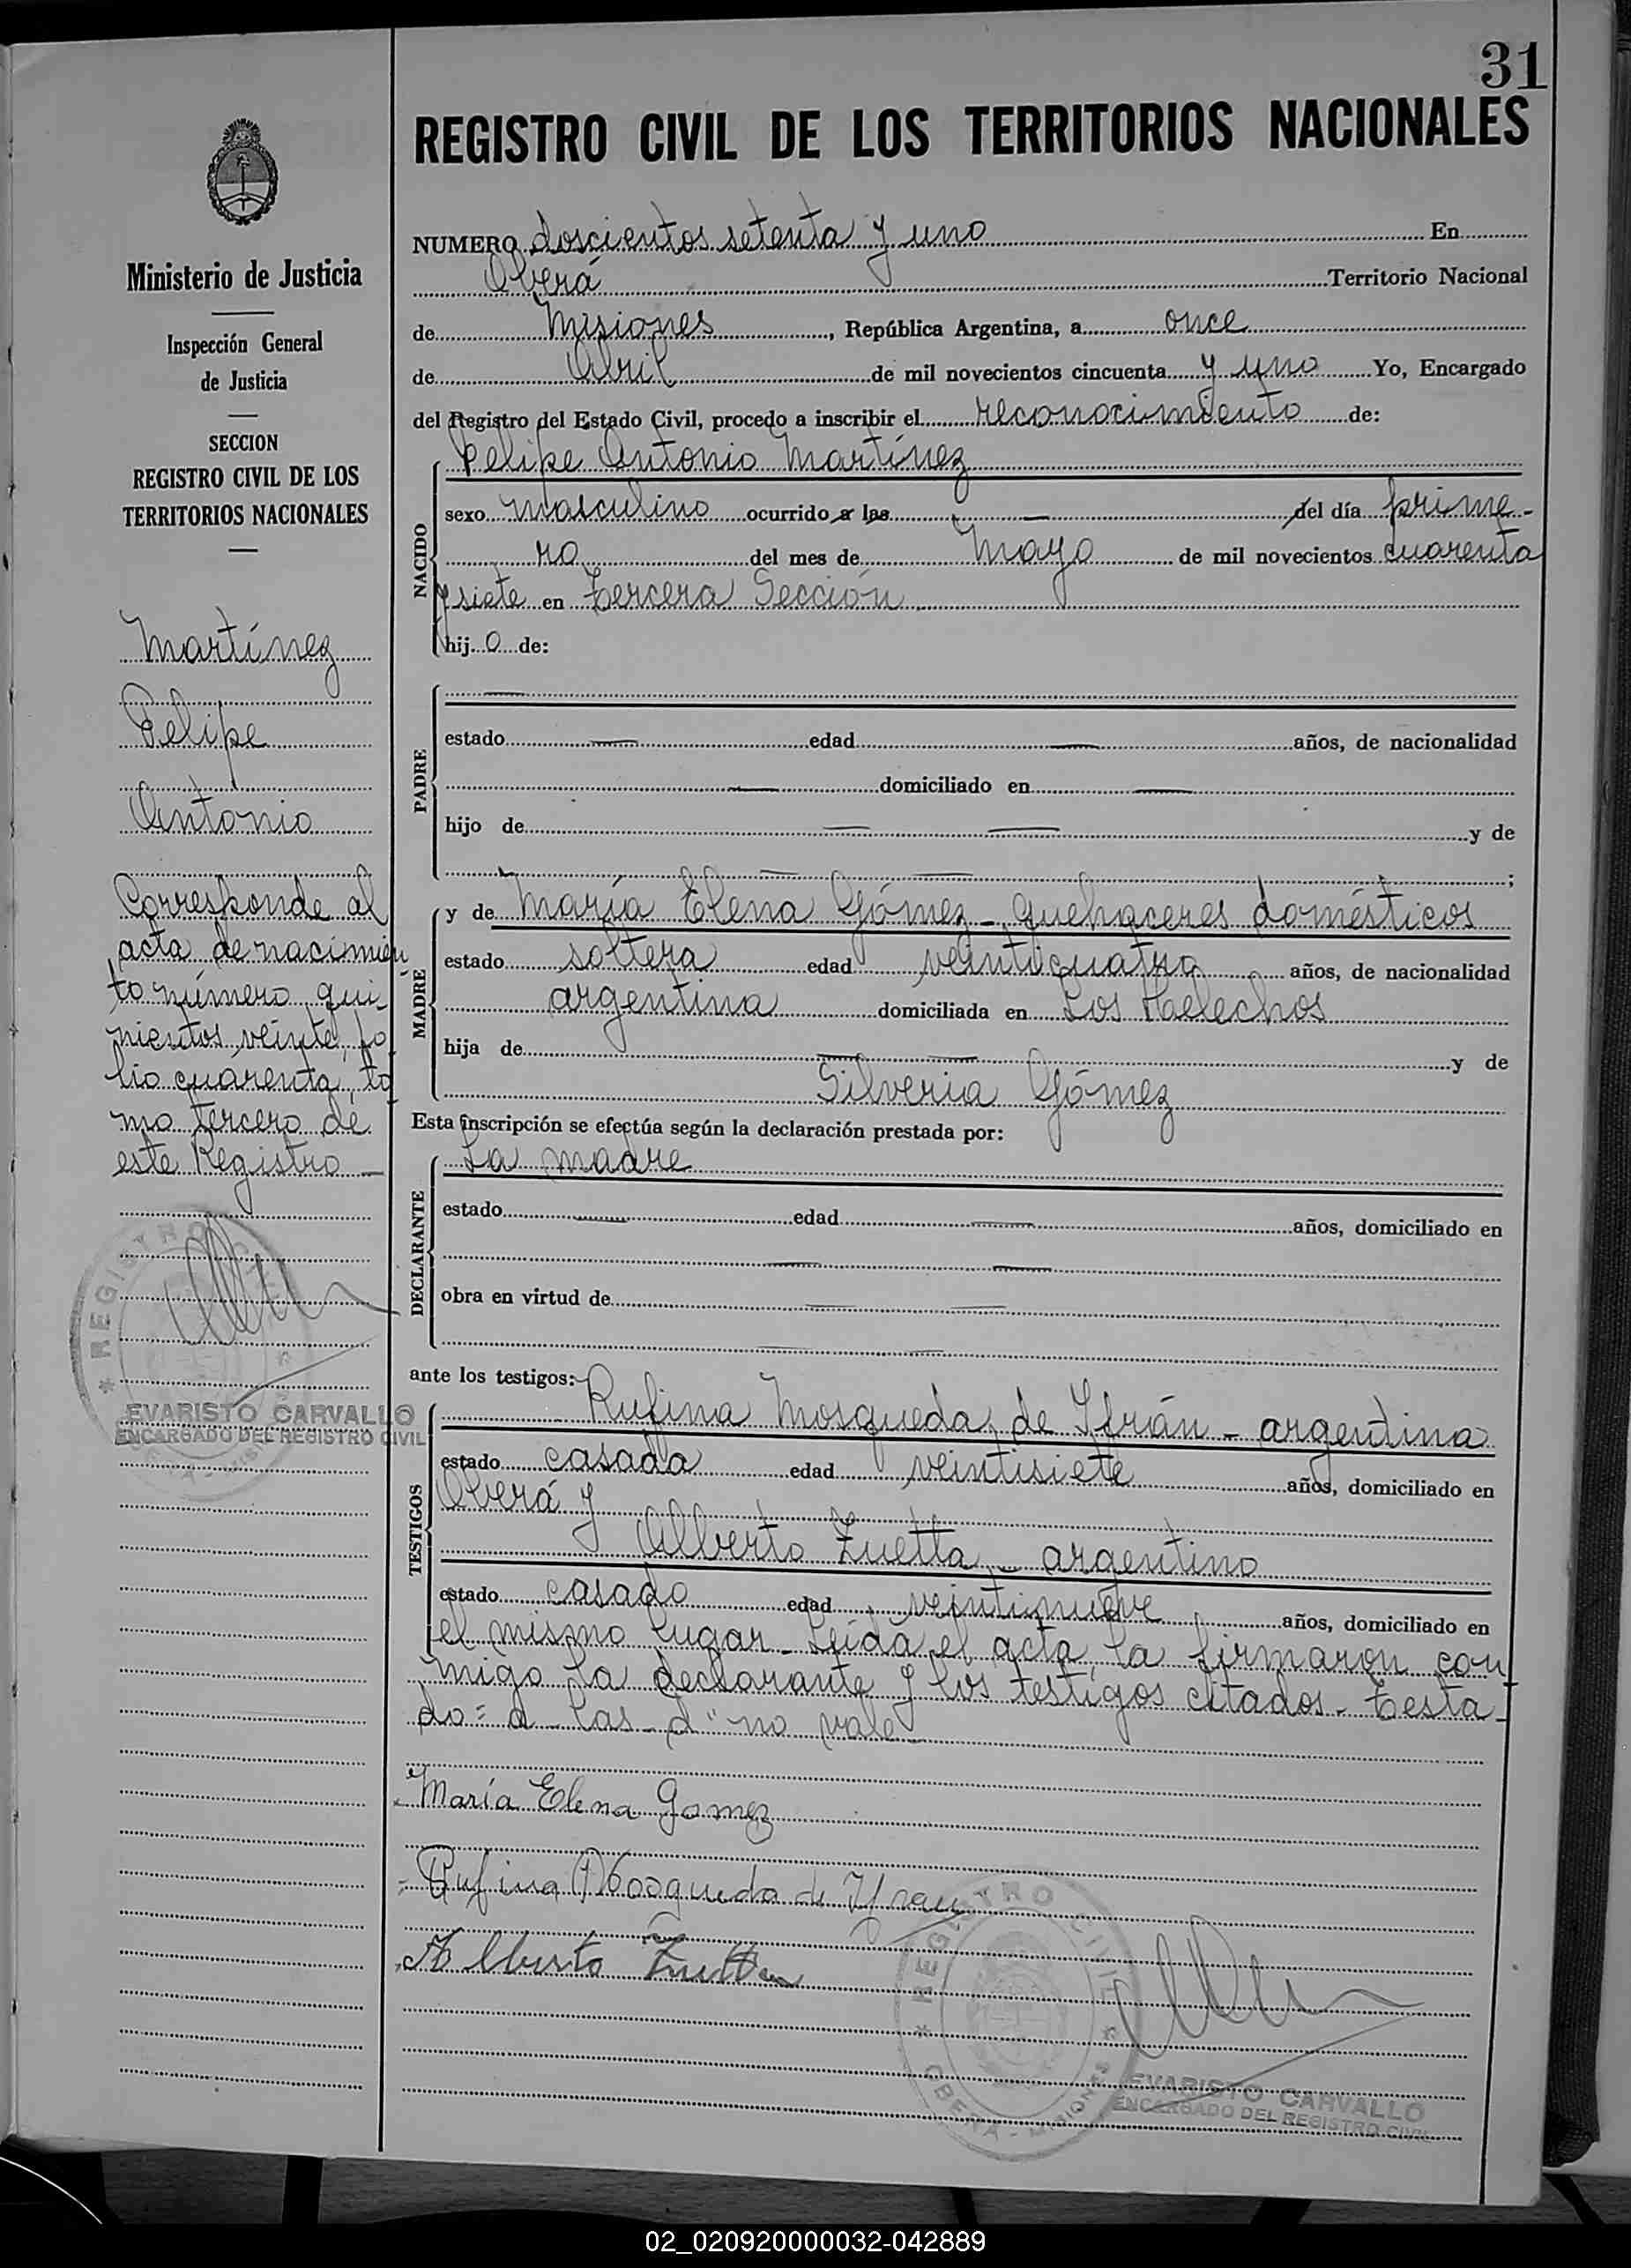 31
REGISTRO CIVIL DE LOS TERRITORIOS NACIONALES
Ministerio de Justicia
Inspección General
de Justicia
SECCION
REGISTRO CIVIL DE LOS
TERRITORIOS NACIONALES
Martínez
Felipe
Antonio
Corresponde al
acta de nacimien
to número qui
nientos veinte, fo
lio cuarenta, to
mo tercero de
este Registro —
REGISTRO
EVARISTO CARVALLO
ENCARGADO DEL REGISTRO CIVIL
NUMERO doscientos setenta y uno En
Oberá Territorio Nacional
de Misiones, República Argentina, a once
de Abril de mil novecientos cincuenta y uno Yo, Encargado
del Registro del Estado Civil, procedo a inscribir el reconocimiento de:
NACIDO
Felipe Antonio Martínez
sexo masculino ocurrido a las — del día prime-
ro del mes de Mayo de mil novecientos cuarenta
y siete en tercera Sección
hij o de:
PADRE
—
estado — edad — años, de nacionalidad
— domiciliado en —
hijo de — — y de
— — ;
MADRE
y de María Elena Gómez - quehaceres domésticos
estado soltera edad veinticuatro años, de nacionalidad
argentina domiciliada en Los Helechos
hija de — — y de
Silveria Gómez
Esta inscripción se efectúa según la declaración prestada por:
DECLARANTE
La madre
estado — edad — años, domiciliado en
— —
obra en virtud de — —
— —
ante los testigos:
TESTIGOS
Rufina Mosqueda de Ifrán - argentina
estado casada edad veintisiete años, domiciliado en
Oberá y
Alberto Zuetta - argentino
estado casado edad veintinueve años, domiciliado en
el mismo lugar - Leída el acta, la firmaron con
migo la declarante y los testigos citados - Testa-
do = a - las - d" no vale -
María Elena Gomez
Rufina Mosqueda de Yfran
Alberto Zuetta
REGISTRO CIVIL
OBERA - MISIONES
EVARISTO CARVALLO
ENCARGADO DEL REGISTRO CIVIL
02_020920000032-042889